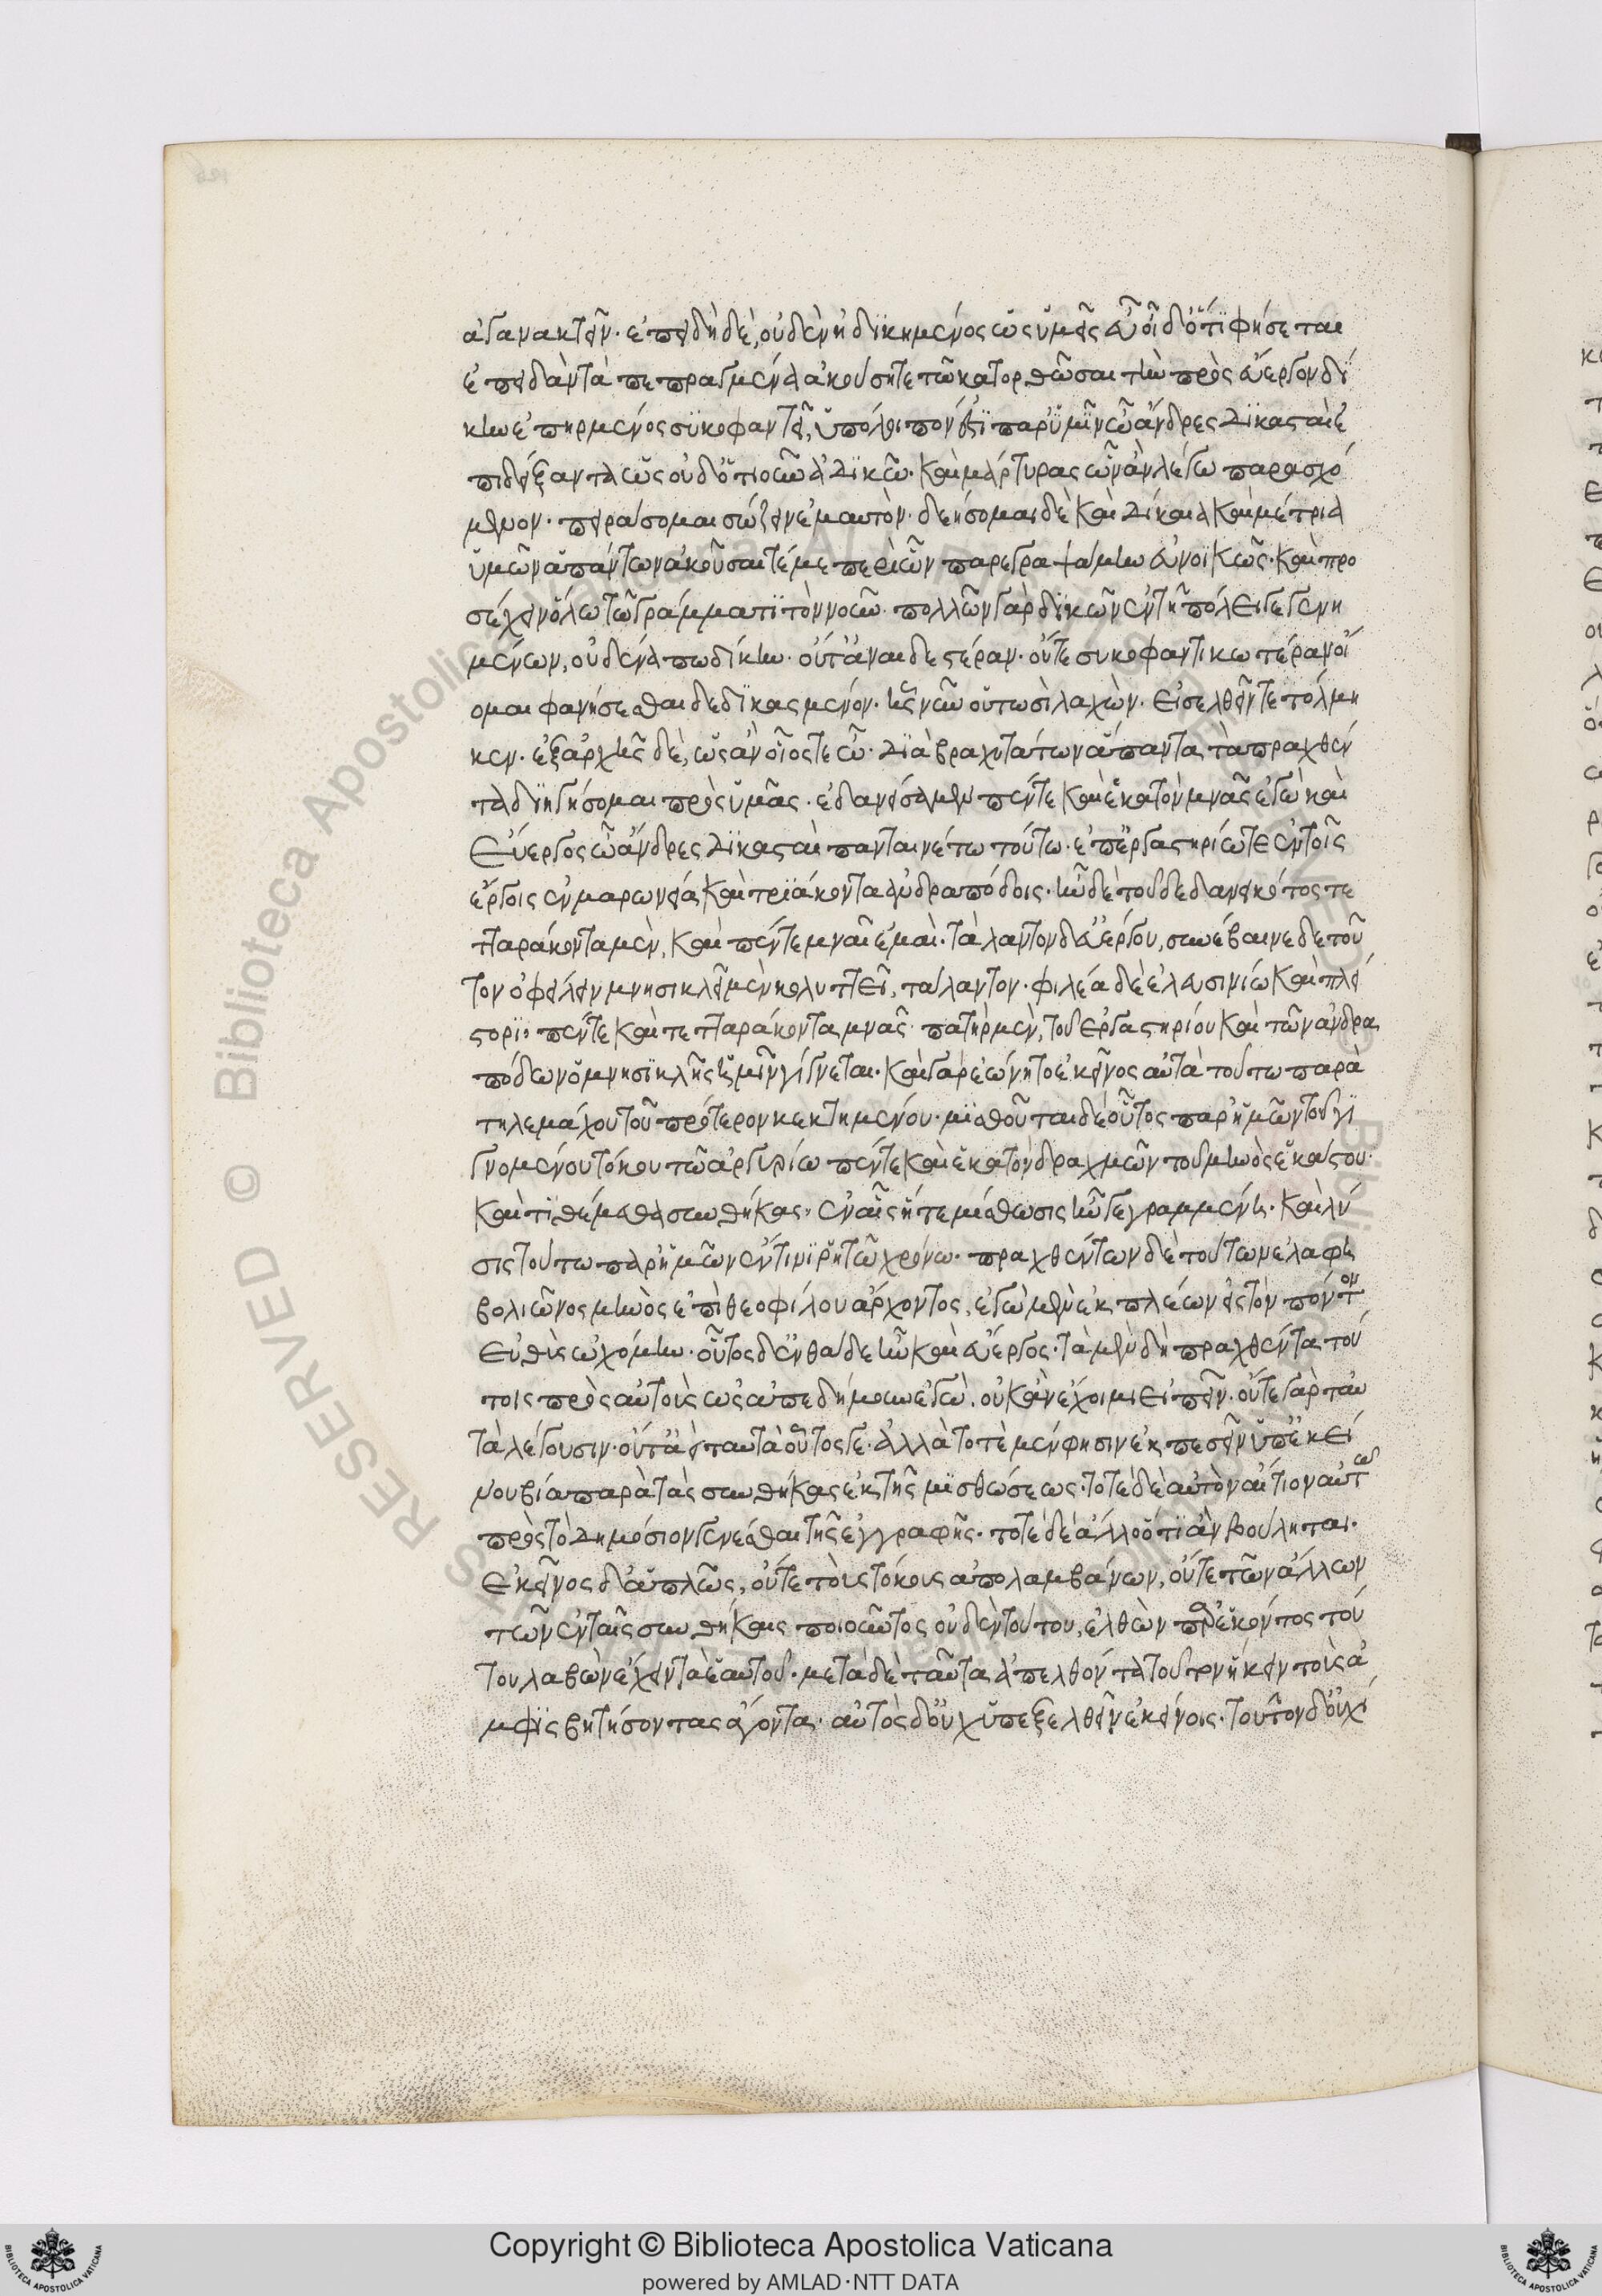 ἀγανακτεῖν· ἐπειδὴ δὲ, οὐδὲν ἠδικημένος ὡς ὑμεῖς εὖ οἶδ' ὅτι φήσεται
ἐπειδὰν τὰ πεπραγμένα ἀκούσητε τῶ κατορθῶσαι τὴν πρὸς εὔεργον δί
κην ἐπηρμένος συκοφαντεῖ, ὑπόλοιπόν ἐστι παρ' ὑμῖν ὦ ἄνδρες δικασταὶ ἐ
πιδείξαντα ὡς οὐδ' ὁτιοῦν ἀδικῶ· καὶ μάρτυρας ὧν ἂν λέγω παρασχό
μενον· πειράσομαι σώζειν ἐμαυτόν· δεήσομαι δὲ καὶ δίκαια καὶ μέτρια
ὑμῶν ἁπάντων ἀκοῦσαι τέ με περὶ ὧν παρεγραψάμην εὐνοϊκῶς· καὶ προ
σέχειν ὅλω τῶ γράμματι τὸν νοῦν· πολλῶν γὰρ δικῶν ἐν τῆ πόλει γεγενη
μένων, οὐδένα πω δίκην· οὔτ' ἀναιδεστέραν· οὔτε συκοφαντικωτέραν οἴ
ομαι φανήσεσθαι δεδικασμένον· ἧς νῦν οὑτωσὶ λαχὼν· εἰσελθεῖν τετόλμη
κεν· ἐξ ἀρχῆς δὲ, ὡς ἂν οἷός τε ὦ· διὰ βραχυτάτων ἅπαντα τὰ πραχθέν
τα διηγήσομαι πρὸς ὑμᾶς· ἐδανείσαμεν πέντε καὶ ἑκατὸν μνᾶς ἐγὼ καὶ
Εὔεργος ὦ ἄνδρες δικασταὶ πανταινέτω τούτω· ἐπ' ἐργαστηρίω τε ἐν τοῖς
ἔργοις ἐν μαρωνεία καὶ τριάκοντα ἀνδραπόδοις· ἦν δὲ τοῦ δεδανεικότος τε
τταράκοντα μὲν, καὶ πέντε μναῖ ἐμαὶ· τάλαντον δ' εὐέργου, συνέβαινε δὲ τοῦ
τον ὀφείλειν μνησικλεῖ μὲν κολυττεῖ, τάλαντον· φιλέα δὲ ἐλευσινίω καὶ πλεί
στορι· πέντε καὶ τετταράκοντα μνᾶς· πρατὴρ μὲν, τοῦ ἐργαστηρίου καὶ τῶν ἀνδρα
πόδων ὁ μνησικλῆς ἡμῖν γίγνεται· καὶ γὰρ ἐώνητο ἐκεῖνος αὐτὰ τούτω παρὰ
τηλεμάχου τοῦ πρότερον κεκτημένου· μισθοῦται δὲ οὗτος παρ' ἡμῶν τοῦ γι
γνομένου τόκου τῶ ἀργυρίω πέντε καὶ ἑκατὸν δραχμῶν τοῦ μηνὸς ἑκάστου·
καὶ τιθέμεθα συνθήκας· ἐν αἷς ἥ τε μίσθωσις ἦν γεγραμμένη· καὶ λύ
σις τούτω παρ' ἡμῶν ἔν τινι ῥητῶ χρόνω· πραχθέντων δὲ τούτων ἐλαφη
βολιῶνος μηνὸς ἐπὶ θεοφίλου ἄρχοντος, ἐγὼ μὲν ἐκπλέων εἰς τὸν πόντον
Εὐθὺς ὠχόμην· οὗτος δ' ἐνθάδε ἦν καὶ εὔεργος· τὰ μὲν δὴ πραχθέντα τού
τοις πρὸς αὑτοὺς ὡς ἀπεδήμουν ἐγὼ. οὐκ ἂν ἔχοιμι εἰπεῖν· οὔτε γὰρ ταὐ
τὰ λέγουσιν· οὔτ' ἀεὶ ταῦτα οὗτός γε· ἀλλὰ τοτὲ μέν φησιν ἐκπεσεῖν ὑπ' ἐκεί
νου βία παρὰ τὰς συνθήκας ἐκ τῆς μισθώσεως· τοτὲ δὲ αὐτὸν αἴτιον αὑτῶ
πρὸς τὸ δημόσιον γενέσθαι τῆς ἐγγραφῆς· τοτὲ δὲ ἄλλο ὅτι ἂν βούληται·
Ἐκεῖνος δ' ἁπλῶς, οὔτε τοὺς τόκους ἀπολαμβάνων, οὔτε τῶν ἄλλων
τῶν ἐν ταῖς συνθήκαις ποιοῦντος οὐδὲν τούτου, ἐλθὼν παρ' ἑκόντος τού
του λαβὼν ἔχειν τὰ ἑαυτοῦ· μετὰ δὲ ταῦτα ἀπελθόντα τοῦτον ἥκειν τοὺς ἀ
μφισβητήσοντας ἄγοντα· αὐτὸς δ' οὐχ ὑπεξελθεῖν ἐκείνοις· τοῦτον δ' οὐχὶ
RESERVED © Biblioteca Apostolica Vaticana
Copyright © Biblioteca Apostolica Vaticana
powered by AMLAD·NTT DATA